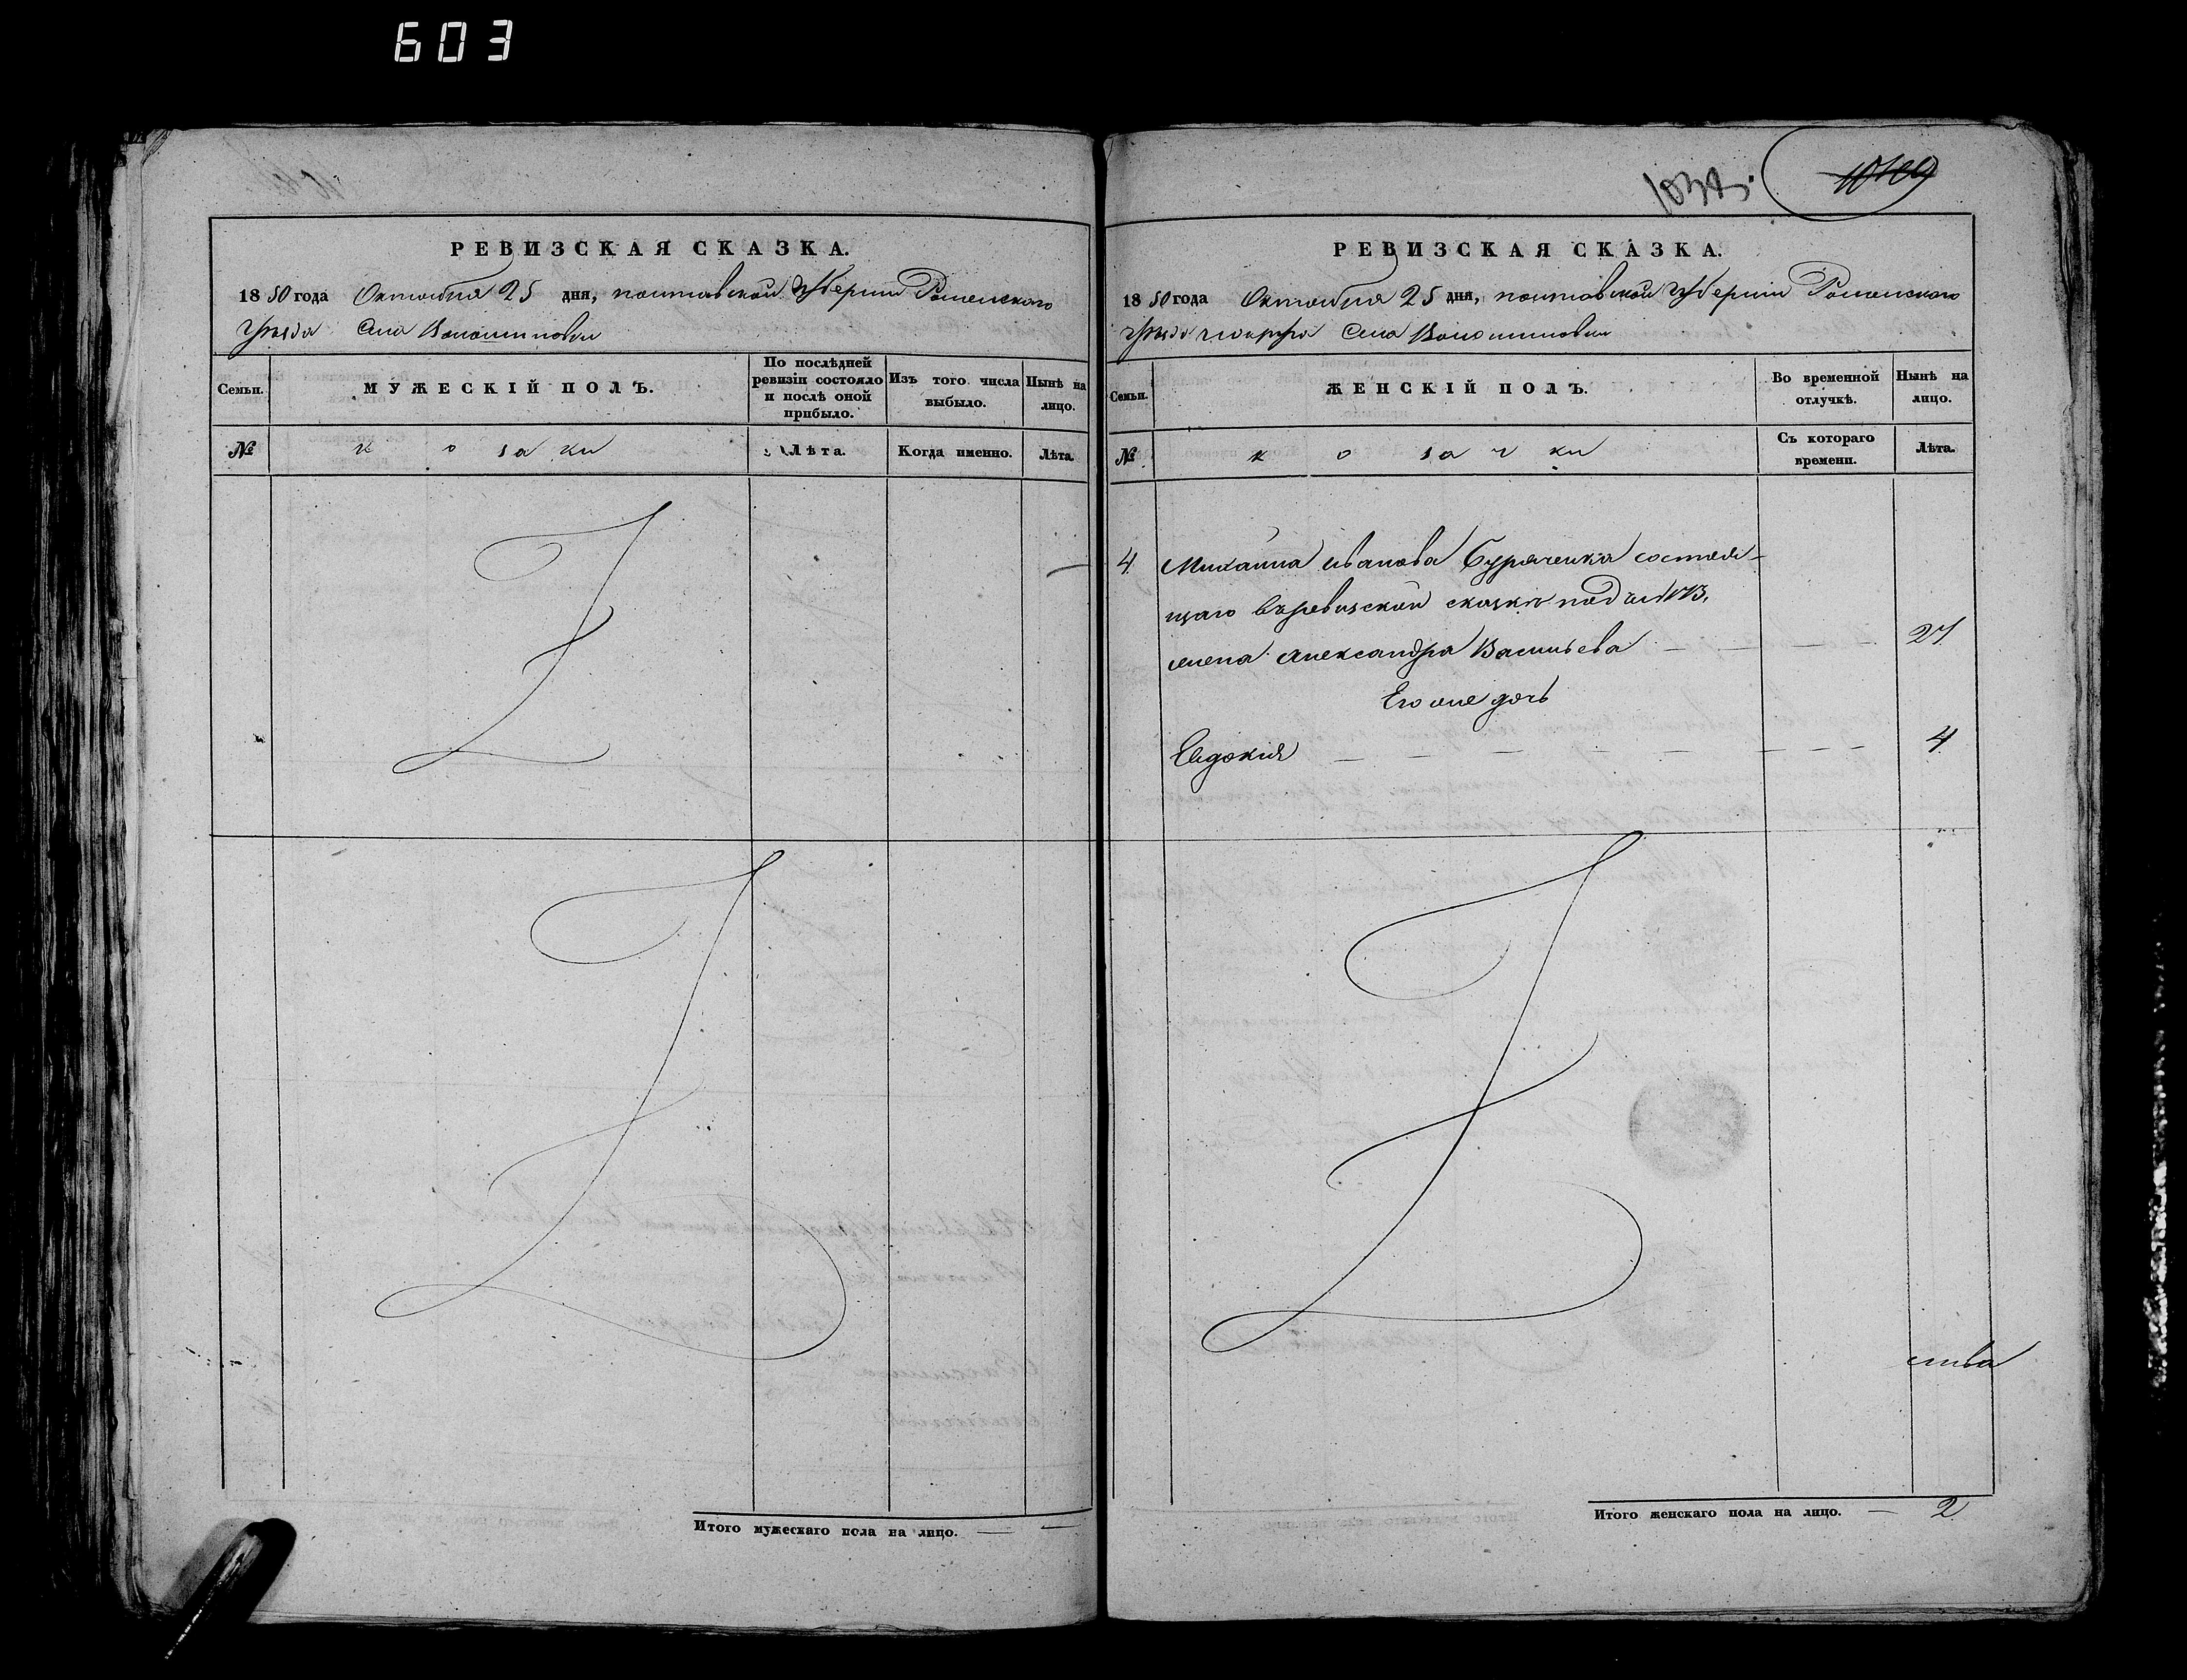 603
РЕВИЗСКАЯ СКАЗКА.
1850 года Октября 25 дня, полтавской Губернии Роменского
Уезда Села Волошиновки
Семьи.
МУЖЕСКІЙ ПОЛЪ.
По послѣдней ревизіи состояло и послѣ оной прибыло.
Изъ того числа выбыло.
Нынѣ на лицо.
№
козаки
Лѣта.
Когда именно.
Лѣта.
Итого мужескаго пола на лицо. —
РЕВИЗСКАЯ СКАЗКА.
1850 года Октября 25 дня, полтавской Губернии Роменского
Уезда Села Волошиновки
Семьи.
ЖЕНСКІЙ ПОЛЪ.
Во временной отлучкѣ.
Нынѣ на лицо.
№
козачки
Съ котораго времени.
Лѣта.
4 Михаила Иванова Буряченка состоя-
щаго въ ревизской сказке под
жена Александра Васильева 27
Его же дочь
Евдокия 4
Итого женскаго пола на лицо. — 2